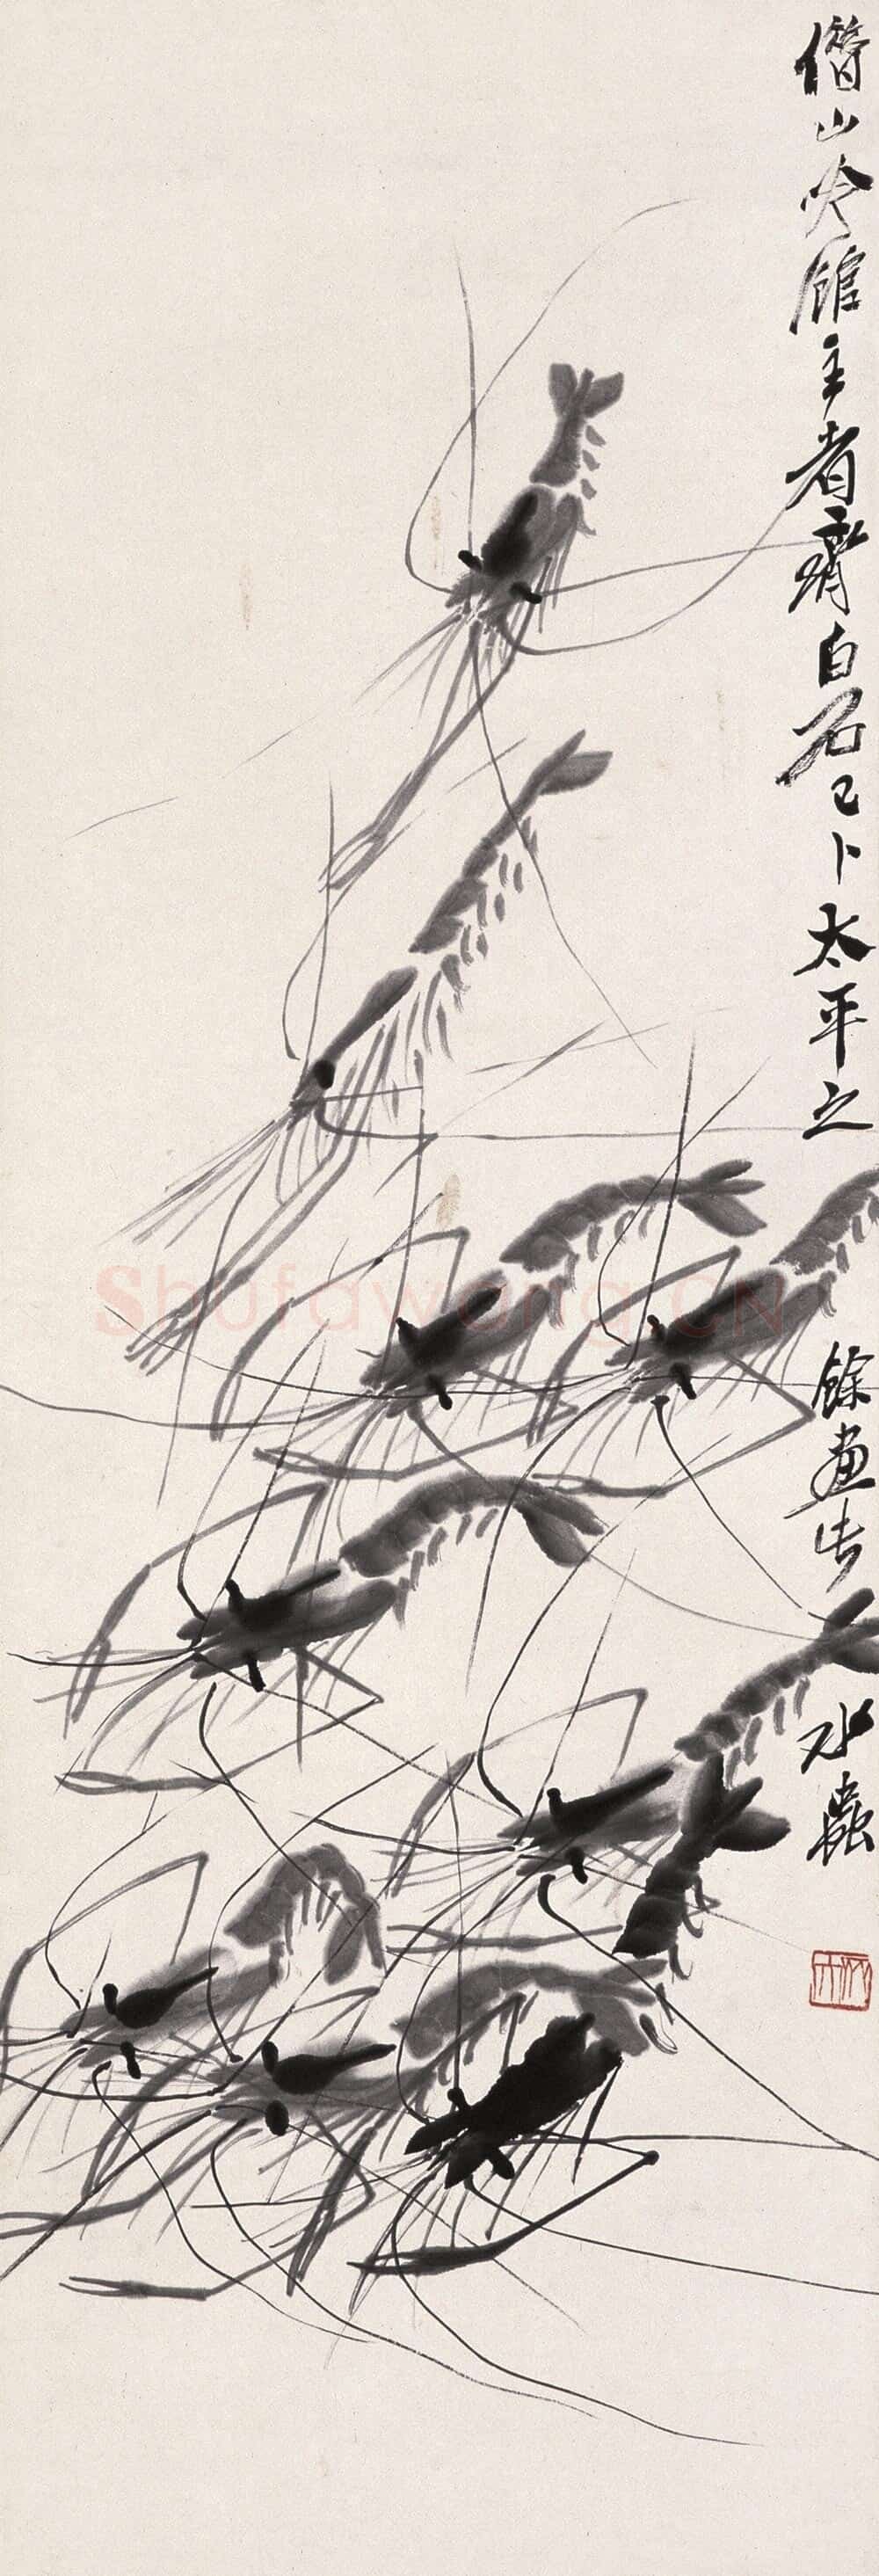 借山吟館主者齊白石已卜太平之餘畫水蟲
Shufawang.CN